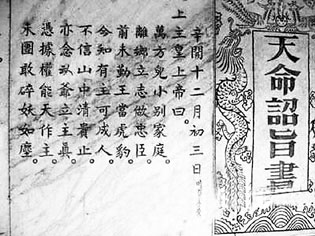 天命詔旨書
辛開十二月初三日
上主皇上帝曰。
萬方兒小別家庭。
離鄉立志做忠臣。
前未勤王當虎豹。
今知有主可成人。
不信山中清貴止。
亦念爺立主真。
憑據權能天作主。
未團敢碎妖如塵。